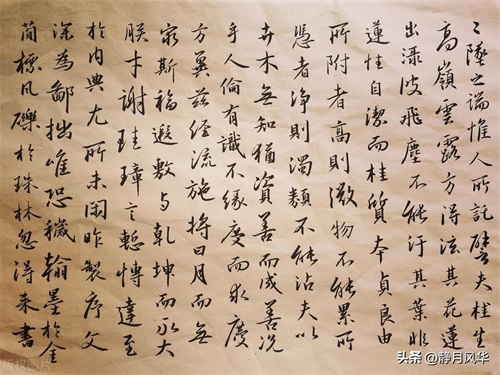 〻墜之端惟人所託譬夫桂生
高嶺雲露方得泫其花蓮
出渌波飛塵不能汙其葉非
蓮性自潔而桂質本貞良由
所附者高則微物不能累所
憑者淨則濁類不能沾夫以
卉木無知猶資善而成善況
乎人倫有識不緣慶而求慶
方冀茲經流施將日月而無
窮斯福遐敷与乾坤而永大
朕才謝珪璋言慙博達至
於内典尤所未閑昨製序文
深為鄙拙唯恐穢翰墨於金
簡標瓦礫於珠林忽得来書
版权图片
头条 @静月风华